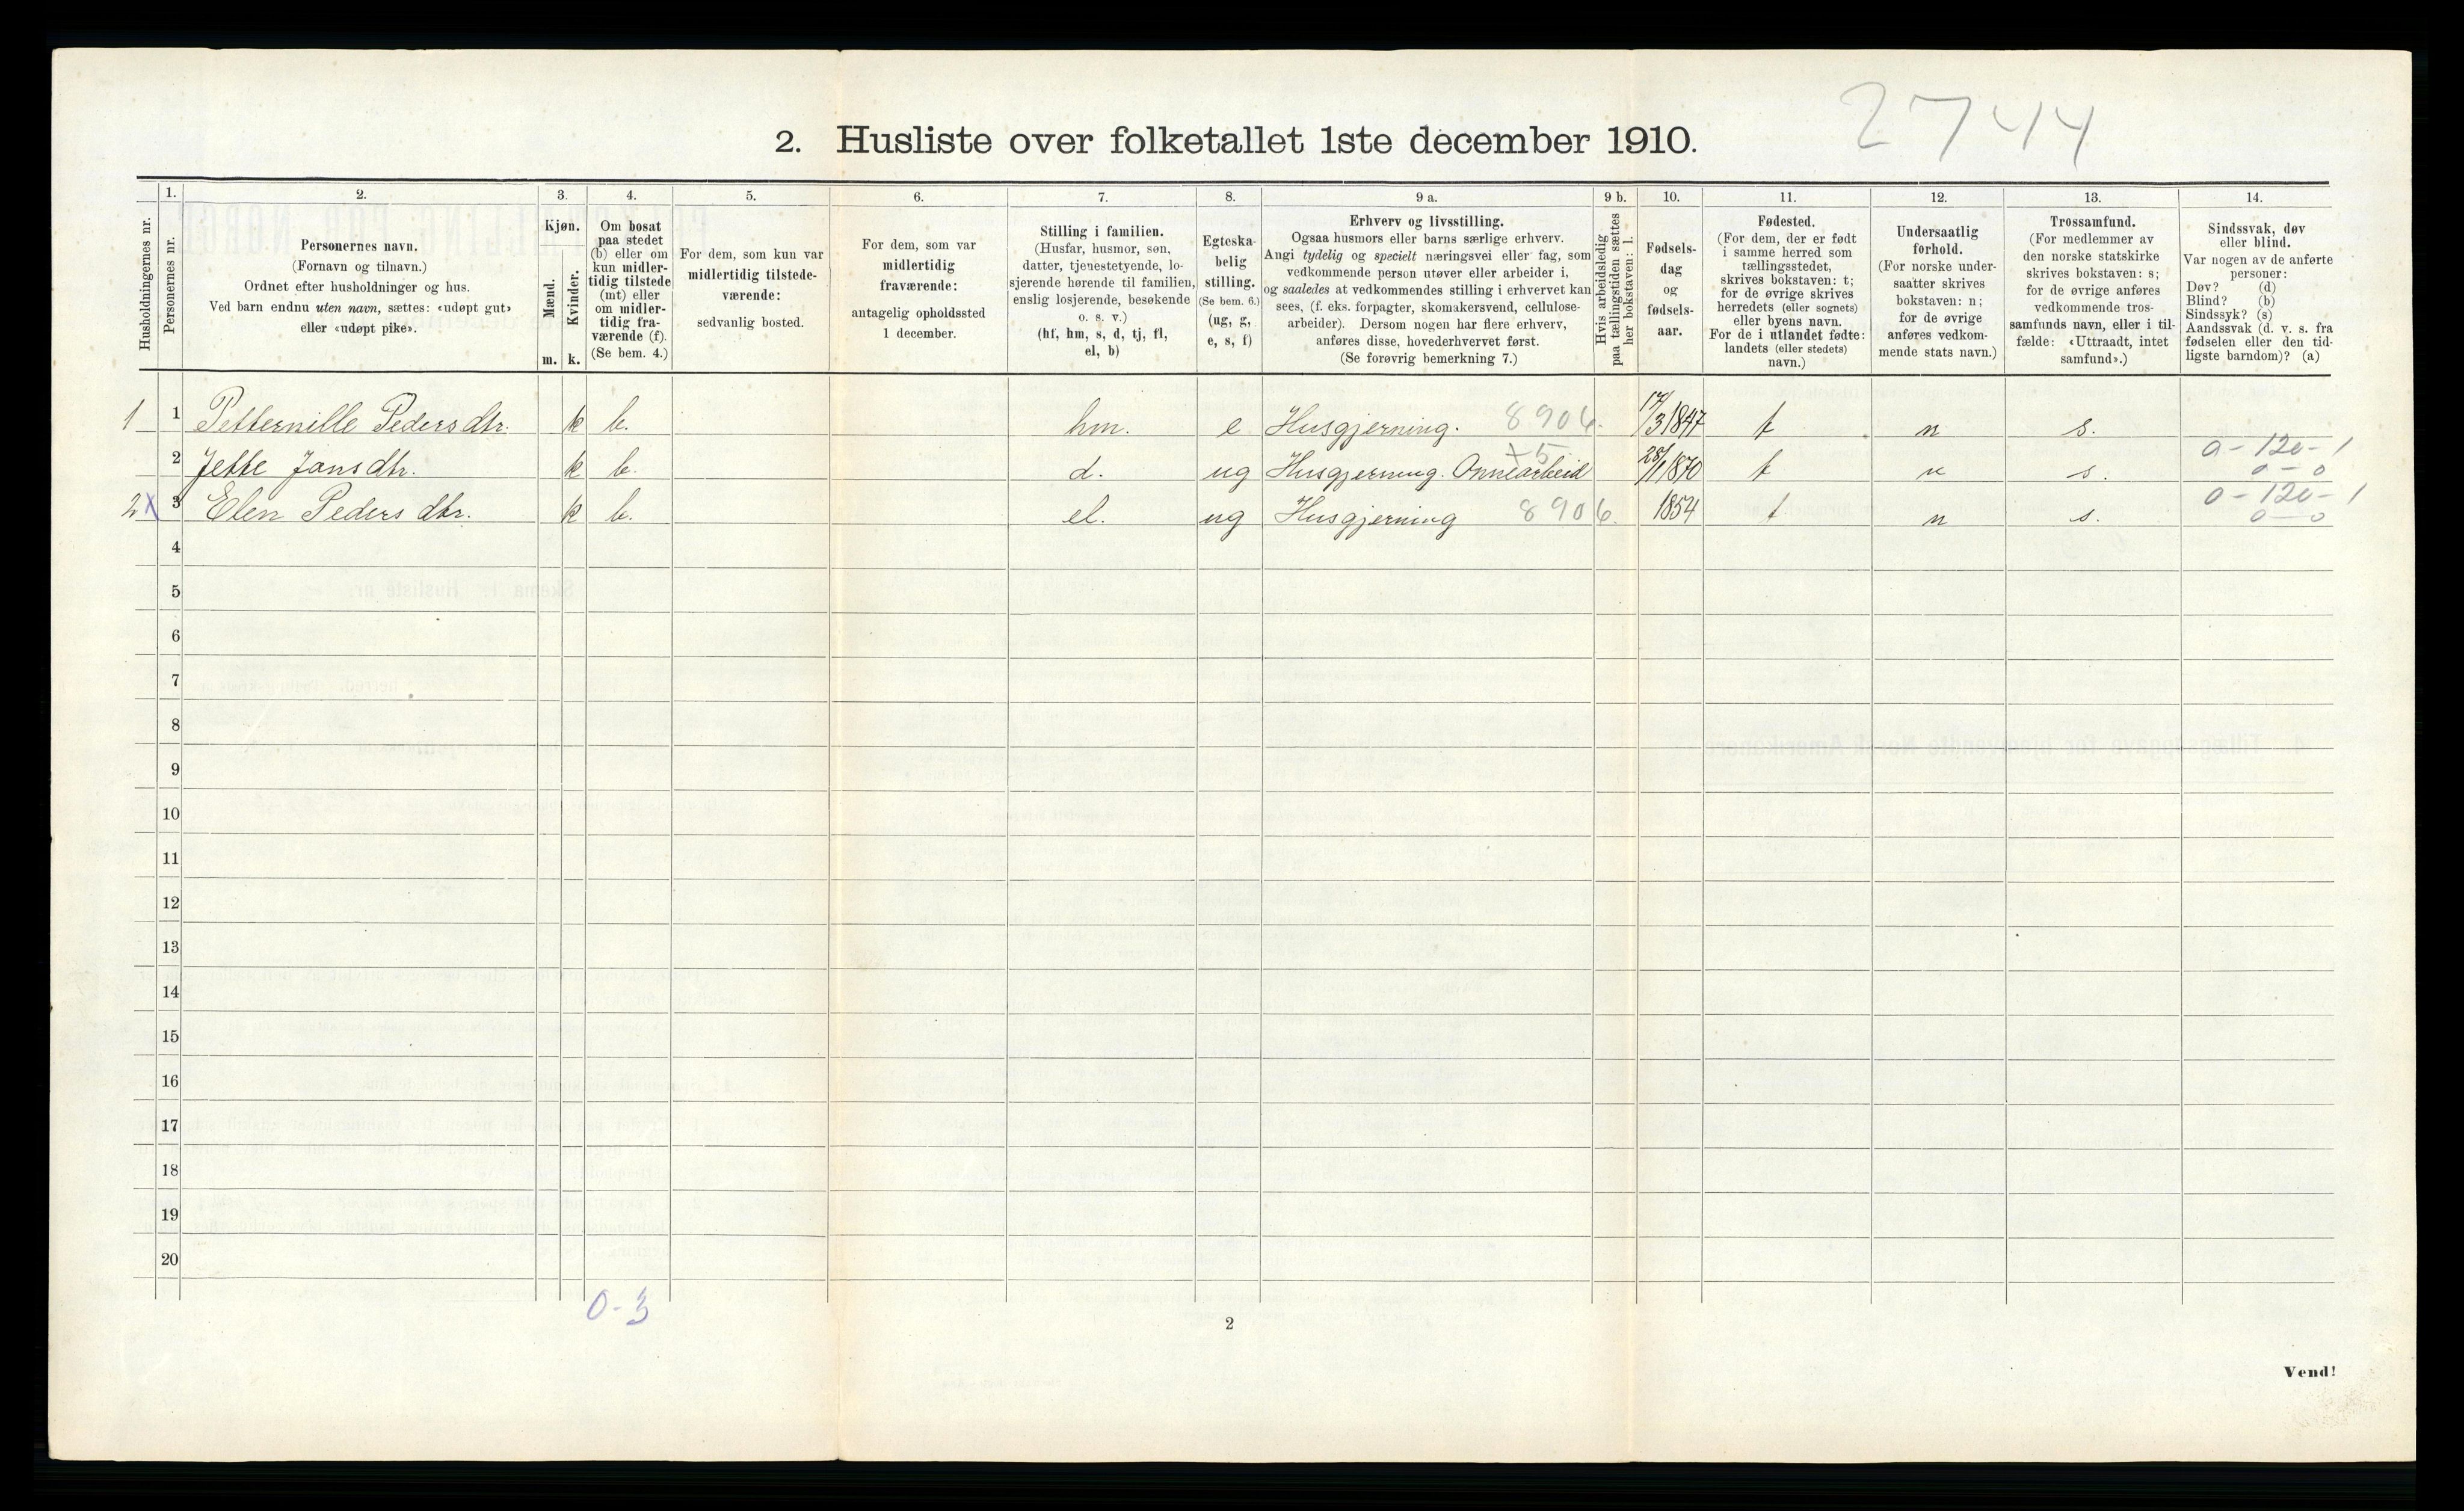 2744
2. Husliste over folketallet 1ste december 1910.
Husholdningernes nr.
1.
Personernes nr.
2.
Personernes navn.
(Fornavn og tilnavn.)
Ordnet efter husholdninger og hus.
Ved barn endnu uten navn, sættes: «udøpt gut»
eller «udøpt pike».
3.
Kjøn.
Mænd.
Kvinder.
m. k.
4.
Om bosat
paa stedet
(b) eller om
kun midler-
tidig tilstede
(mt) eller
om midler-
tidig fra-
værende (f).
(Se bem. 4.)
5.
For dem, som kun var
midlertidig tilstede-
værende:
sedvanlig bosted.
6.
For dem, som var
midlertidig
fraværende:
antagelig opholdssted
1 december.
7.
Stilling i familien.
(Husfar, husmor, søn,
datter, tjenestetyende, lo-
sjerende hørende til familien,
enslig losjerende, besøkende
o. s. v.)
(hf, hm, s, d, tj, fl,
el, b)
8.
Egteska-
belig
stilling.
(Se bem. 6.)
(ug, g,
e, s, f)
9 a.
Erhverv og livsstilling.
Ogsaa husmors eller barns særlige erhverv.
Angi tydelig og specielt næringsvei eller fag, som
vedkommende person utøver eller arbeider i,
og saaledes at vedkommendes stilling i erhvervet kan
sees, (f. eks. forpagter, skomakersvend, cellulose-
arbeider). Dersom nogen har flere erhverv,
anføres disse, hovederhvervet først.
(Se forøvrig bemerkning 7.)
9 b.
Hvis arbeidsledig
paa tællingstiden sættes
her bokstaven: l.
10.
Fødsels-
dag
og
fødsels-
aar.
11.
Fødested.
(For dem, der er født
i samme herred som
tællingsstedet,
skrives bokstaven: t;
for de øvrige skrives
herredets (eller sognets)
eller byens navn.
For de i utlandet fødte:
landets (eller stedets)
navn.)
12.
Undersaatlig
forhold.
(For norske under-
saatter skrives
bokstaven: n;
for de øvrige
anføres vedkom-
mende stats navn.)
13.
Trossamfund.
(For medlemmer av
den norske statskirke
skrives bokstaven: s;
for de øvrige anføres
vedkommende tros-
samfunds navn, eller i til-
fælde: «Uttraadt, intet
samfund».)
14.
Sindssvak, døv
eller blind.
Var nogen av de anførte
personer:
Døv? (d)
Blind? (b)
Sindssyk? (s)
Aandssvak (d. v. s. fra
fødselen eller den tid-
ligste barndom)? (a)
1 1 Petternille Pedersdtr. k b. hm. e Husgjerning. 8906. 17/3 1847 t n s.
2 Jette Jansdtr. k b. d. ug Husgjerning. Onnearbeid +5 28/1 1870 t n s. 0-120-1 0-0
2 X 3 Elen Pedersdtr. k b. el. ug Husgjerning 8906. 1854 t n s. 0-120-1 0-0
4
5
6
7
8
9
10
11
12
13
14
15
16
17
18
19
20
0-3
2
Vend!